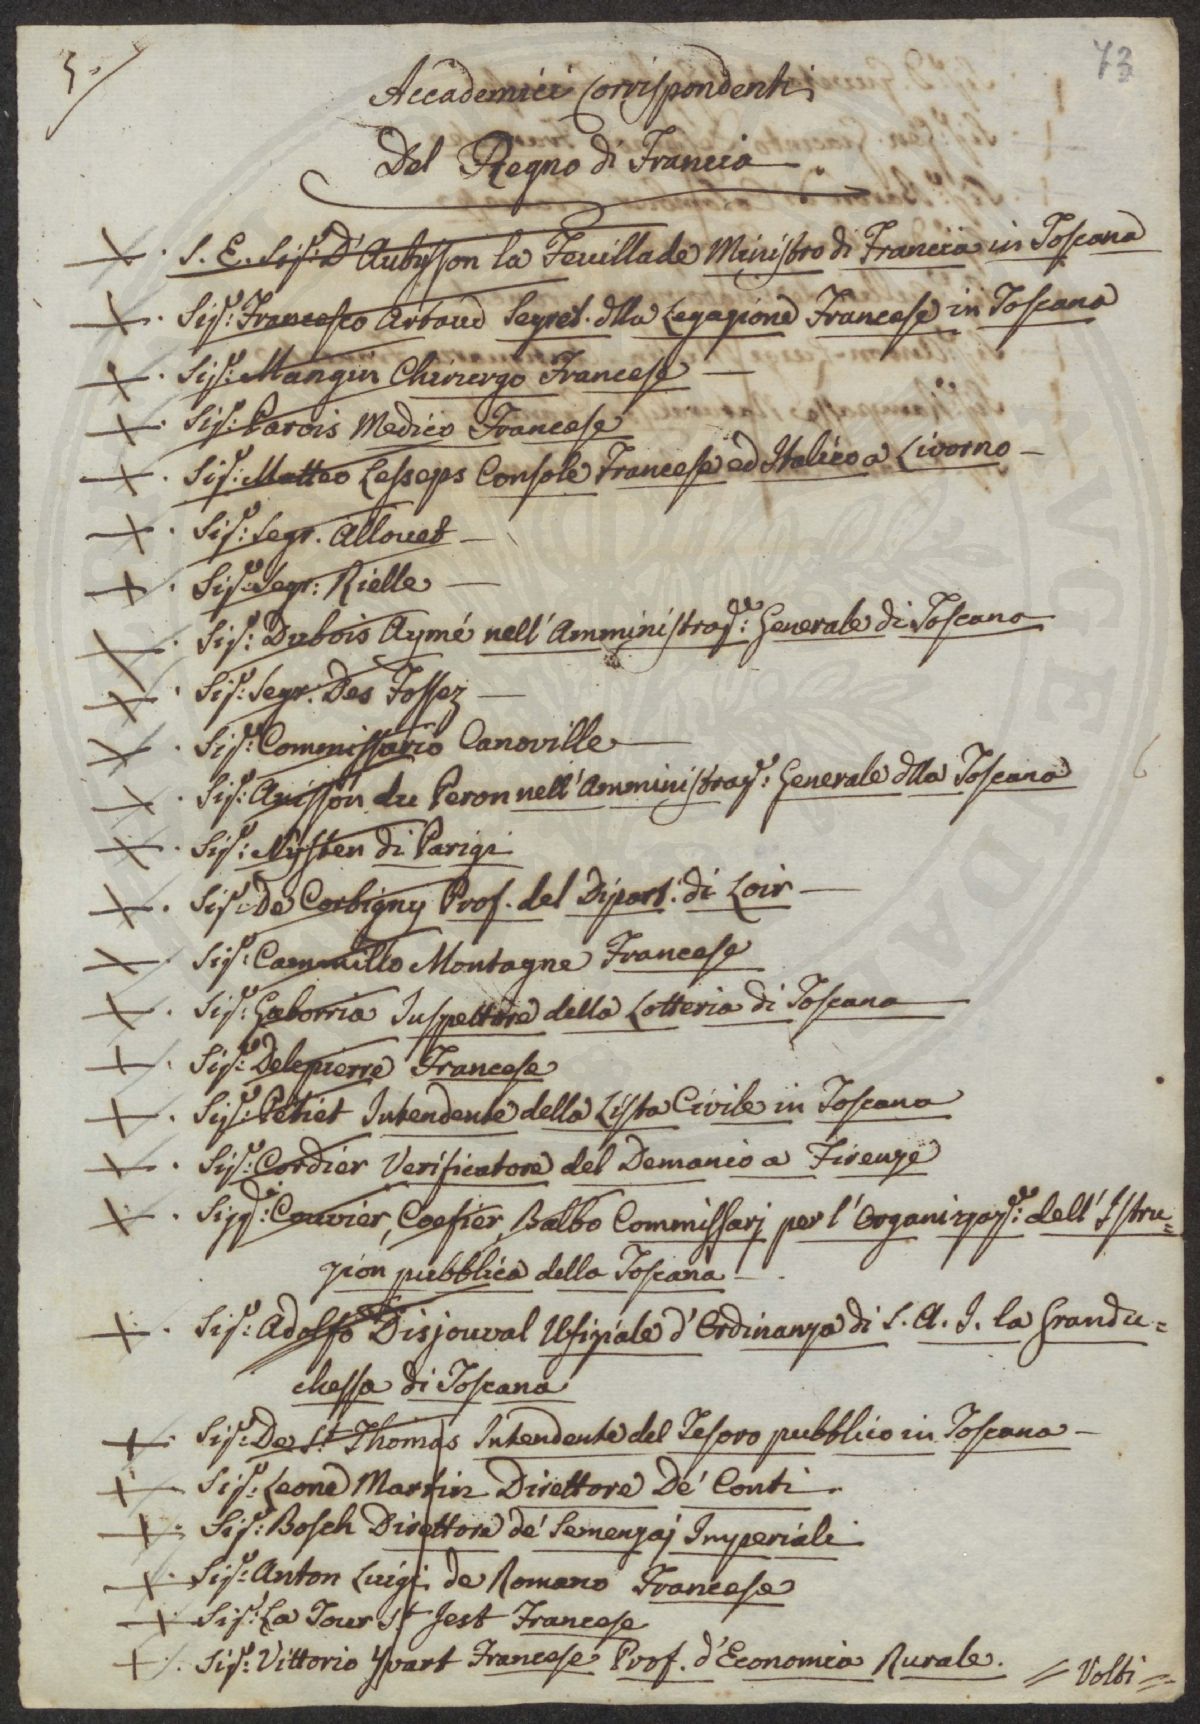 5.
73
Accademici Corrispondenti
Del Regno di Francia
S. E. Sig.r D'Aubusson la Feuillade Ministro di Francia in Toscana
Sig.r Francesco Artaud Segret. della Legazione Francese in Toscana
Sig.r Mangin Chirurgo Francese —
Sig.r Parois Medico Francese
Sig.r Matteo Lesseps Console Francese ed Italico a Livorno —
Sig.r Segr. Allouet —
Sig.r Segr. Rielle —
Sig.r Dubois Aymé nell'Amministraz.e Generale di Toscana
Sig.r Segr. Des Fossez —
Sig.r Commissario Canoville —
Sig.r Avisson du Peron nell'Amministraz.e Generale della Toscana
Sig.r Nysten di Parigi
Sig.r De Corbigny Prof. del Dipart. di Loir —
Sig.r Cammillo Montagne Francese
Sig.r Gaborria Inspettore della Lotteria di Toscana
Sig.r Delepierre Francese
Sig.r Petiet Intendente della Lista Civile in Toscana
Sig.r Cordier Verificatore del Demanio a Firenze
Sigg.ri Couvier, Coefier, Balbo Commissarj per l'Organizzaz.e dell'Istru=
zion pubblica della Toscana —
Sig.r Adolfo Disjouval Ufiziale d'Ordinanza di S. A. I. la Grandu=
chessa di Toscana
Sig.r De St. Thomas Intendente del Tesoro pubblico in Toscana —
Sig.r Leone Martin Direttore De' Conti
Sig.r Bosch Direttore de' Semenzaj Imperiali
Sig.r Anton Luigi de Romano Francese
Sig.r La Tour St. Jest Francese
Sig.r Vittorio Yvart Francese Prof. d'Economia Rurale.
= Volti =